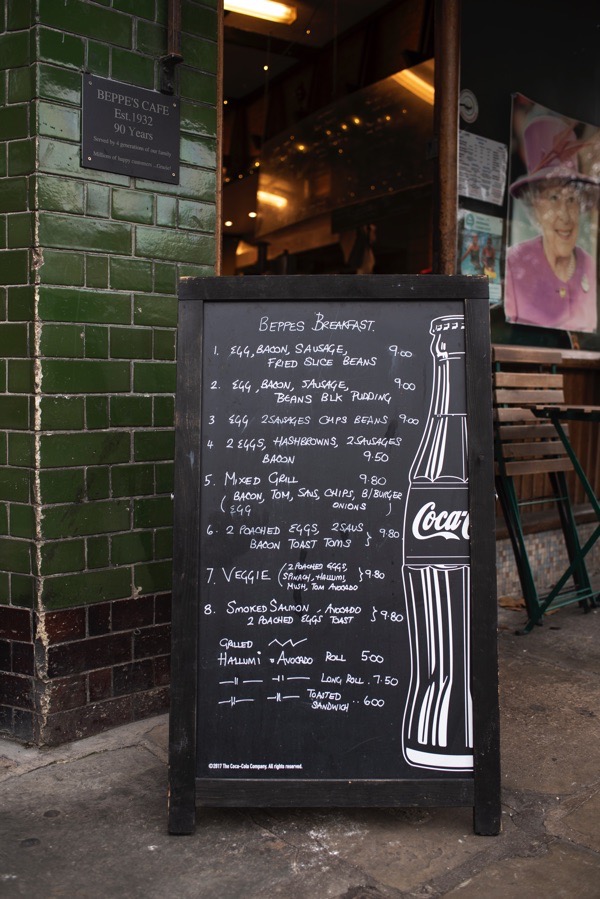 BEPPE'S CAFE
Est.1932
90 Years
Served by 4 generations of our family
Millions of happy customers
BEPPES BREAKFAST.
1. EGG, BACON, SAUSAGE, 9.00
FRIED SLICE BEANS
2. EGG, BACON, SAUSAGE, 9.00
BEANS BLK PUDDING
3 EGG 2SAUSAGES CHIPS BEANS 9.00
4 2 EGGS, HASHBROWNS, 2SAUSAGES
BACON 9.50
5. MIXED GRILL 9.80
(BACON, TOM, SAUS, CHIPS, B/BURGER
EGG ONIONS)
6. 2 POACHED EGGS, 2SAUS } 9.80
BACON TOAST TOMS
7. VEGGIE (2 POACHED EGGS, } 9.80
SPINACH, HALLUMI,
MUSH, TOM AVOCADO
8. SMOKED SALMON, AVOCADO } 9.80
2 POACHED EGGS TOAST
GRILLED
HALLUMI & AVOCADO ROLL 5.00
—"— —"— LONG ROLL . 7.50
—"— —"— TOASTED .. 6.00
SANDWICH
Coca-C
©2017 The Coca-Cola Company. All rights reserved.